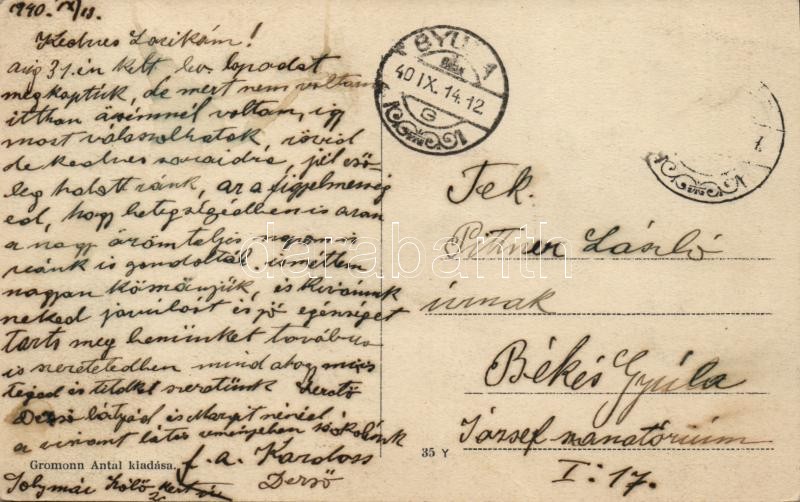 1940. IX/13.
Kedves Lacikám!
aug 31.én kelt lev. lapodat
megkaptuk, de mert nem voltam
itthon öcsémnél voltam, így
most válaszolhatok, rövid
de kedves soraidra, jól eső-
leg hatott ránk, az a figyelmesség
ed, hogy betegségedben is azon
a nagy örömteljes napon is
reánk is gondoltál, ismételten
nagyon köszönjük, és kivánunk
neked javulást és jó egésséget
tarts meg bennünket továbbra
is szeretetedben mind ahogy mi is
téged és titeket szeretünk
Dezső bátyád is Margit nénéd
a viszont látás reményében csókolunk
f. a. Kardoss
Dezső
Solymár
Gromonn Antal kiadása.
35 Y
GYULA
40 IX. 14. 12
G
Tek.
Pittner László
úrnak
Békés Gyula
József szanatórium
I: 17.
darabanth